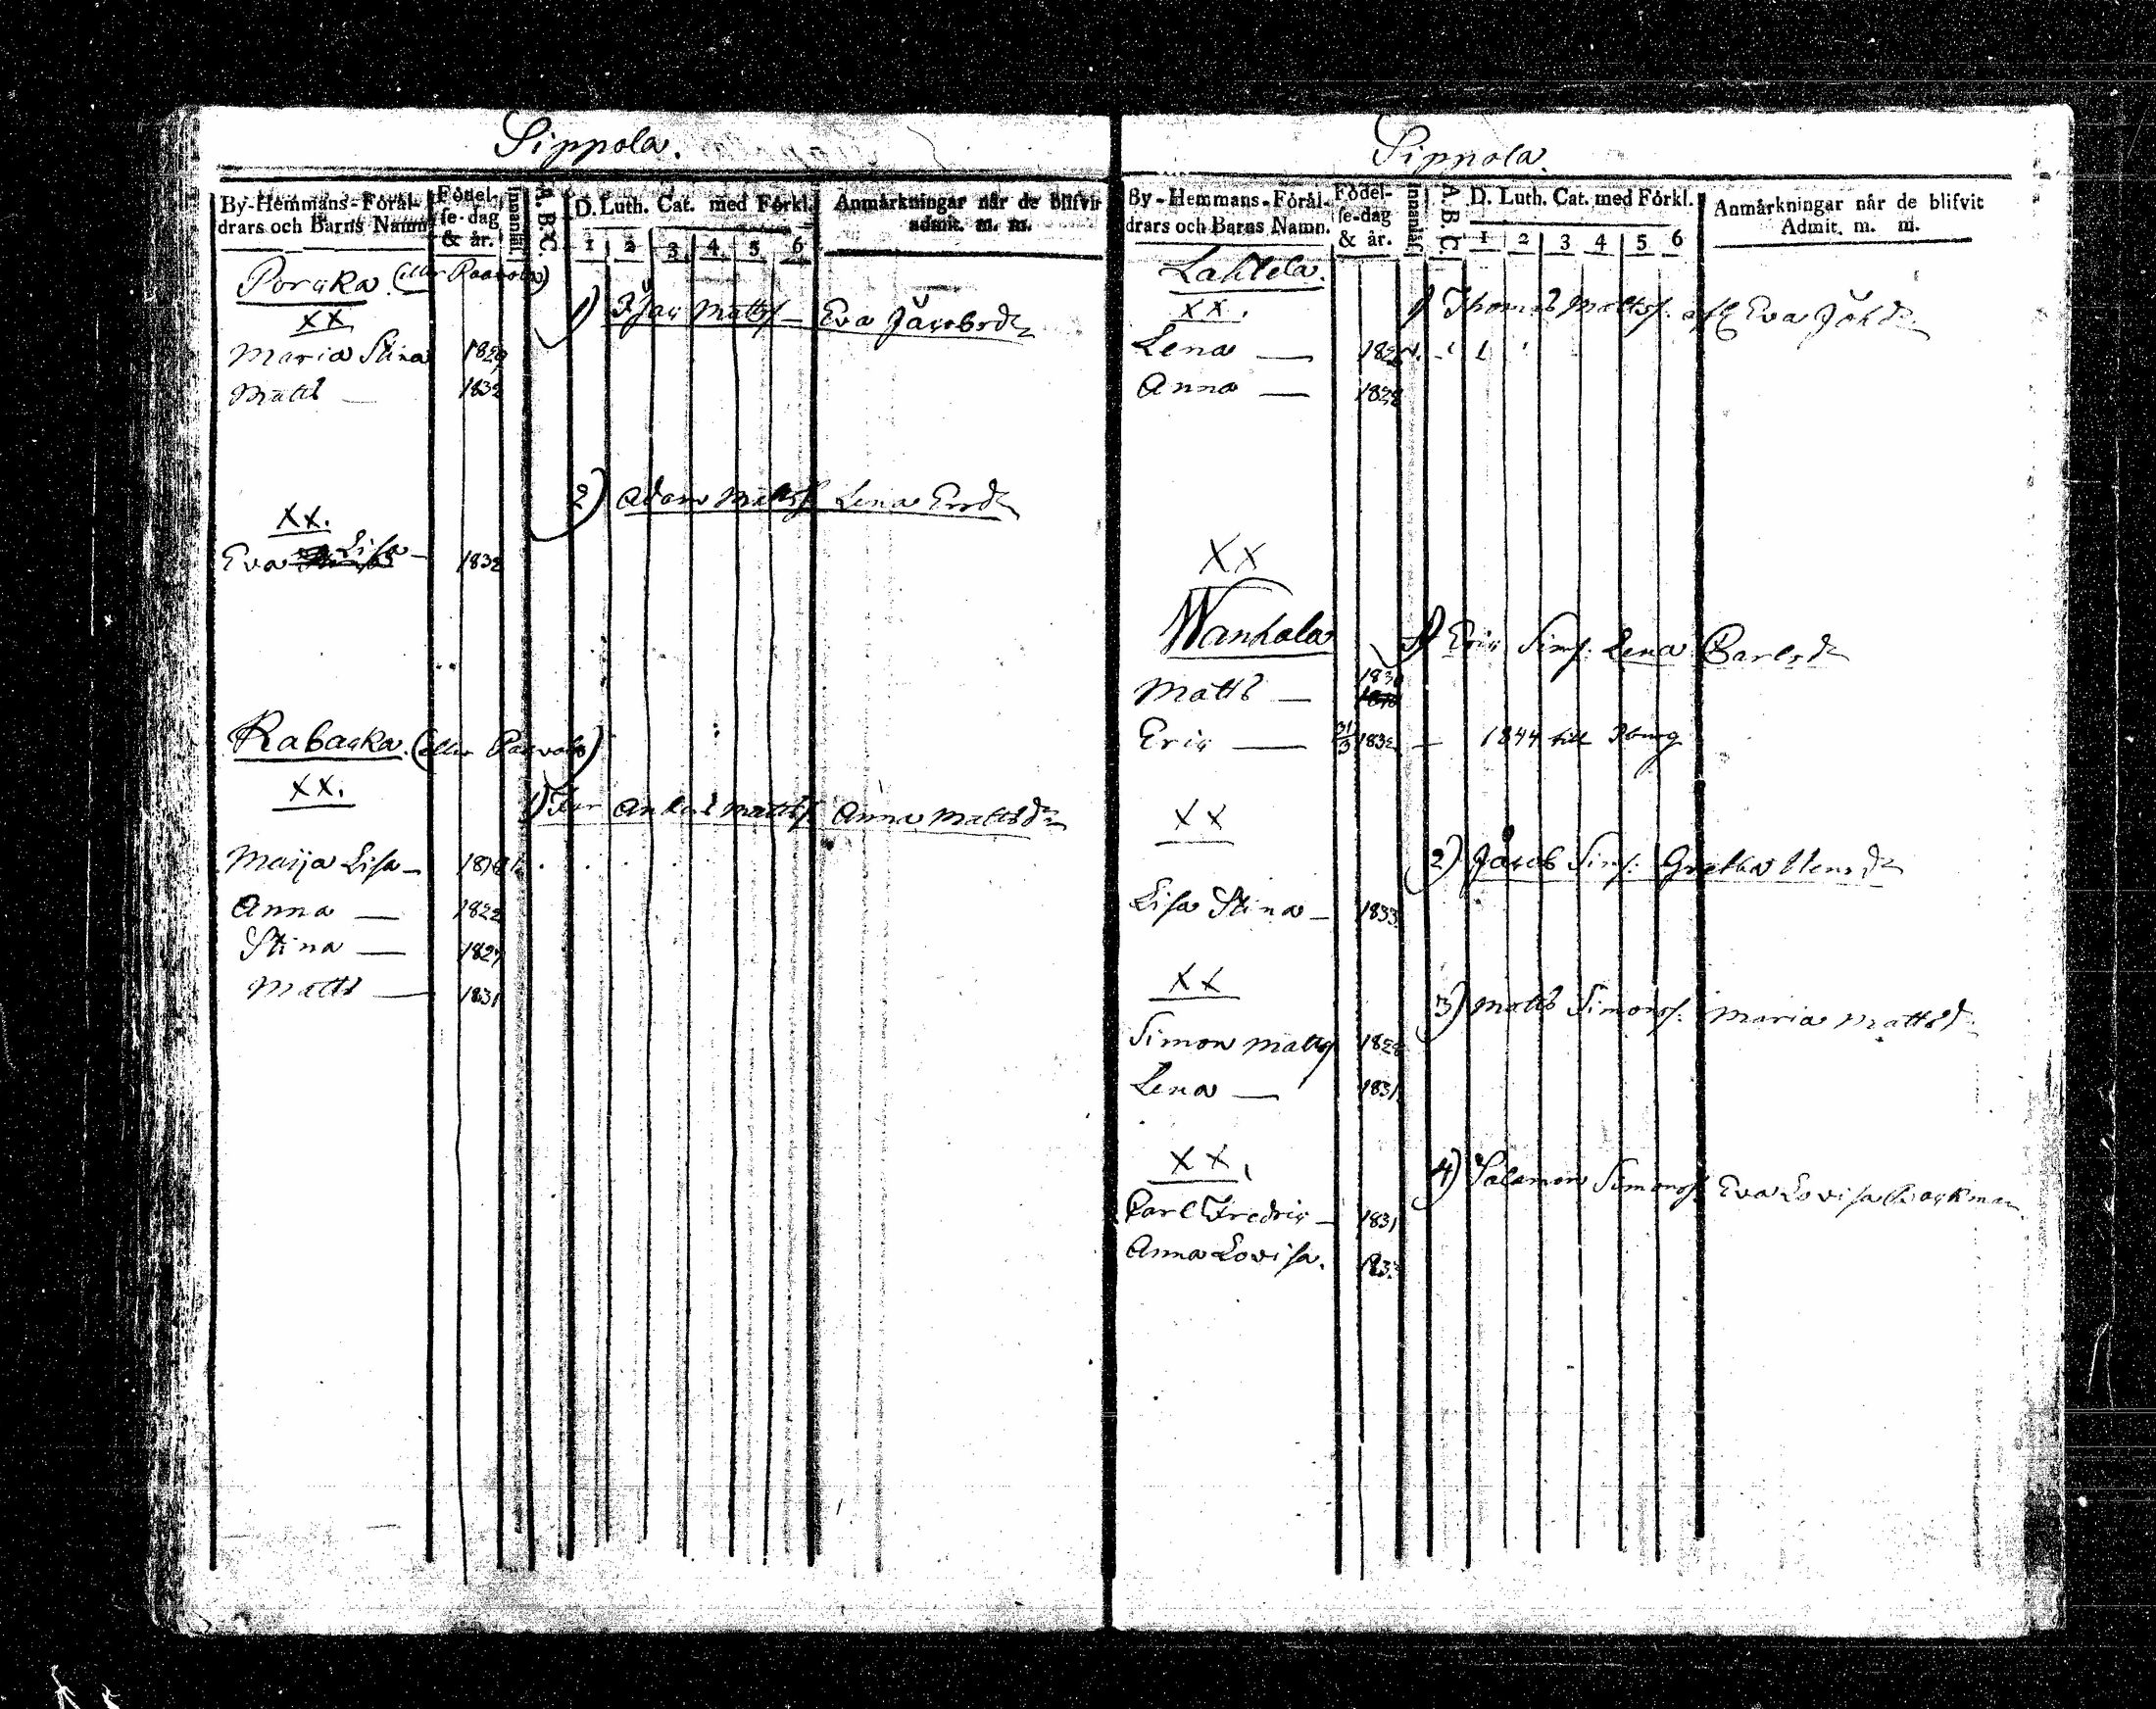 Sippola.
By-Hemmans-Föräl-
drars och Barns Namn
Födel-
se-dag
& år.
Innanläs.
A. B. C.
D. Luth. Cat. med Förkl.
1 2 3 4 5 6
Anmärkningar når de blifvit
admit. m. m.
(eller Paavola)
XX
1) Matts. Eva Jacobsdr
Maria Stina 1829
Matts — 1832
XX.
2) Adam Mattss. Lena Ersdr
Eva Lisa — 1832
(eller Paavola)
XX.
1) Matts. Anna Mattsdr
Maija Lisa —
Anna — 1822
Stina — 1827
Matts — 1831
Sippola.
By-Hemmans-Föräl-
drars och Barns Namn.
Födel-
se-dag
& år.
Innanläs.
A. B. C.
D. Luth. Cat. med Förkl.
1 2 3 4 5 6
Anmärkningar når de blifvit
Admit. m. m.
Lahtela.
XX.
1) Thomas Mattss. Eva Joh.dr
Lena —
Anna — 1828
XX
Wanhala
1) Eric Sims. Lena Carlsdr
Matts —
Eric — 31/3 1832 — 1844 till
XX
2) Jacob Sims. Gretha Hensdr
Lisa Stina — 1833
XX
3) Matts Simons. Maria Mattsd.
Simon Matts 1828
Lena — 1831
XX.
4) Salamon Simons. Eva Lovisa Backman
Carl Fredric — 1831
Anna Lovisa. 1833